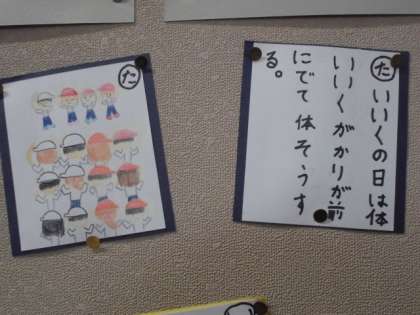 たいいくの日は体
いいくがかりが前
にでて体そうす
る。
た